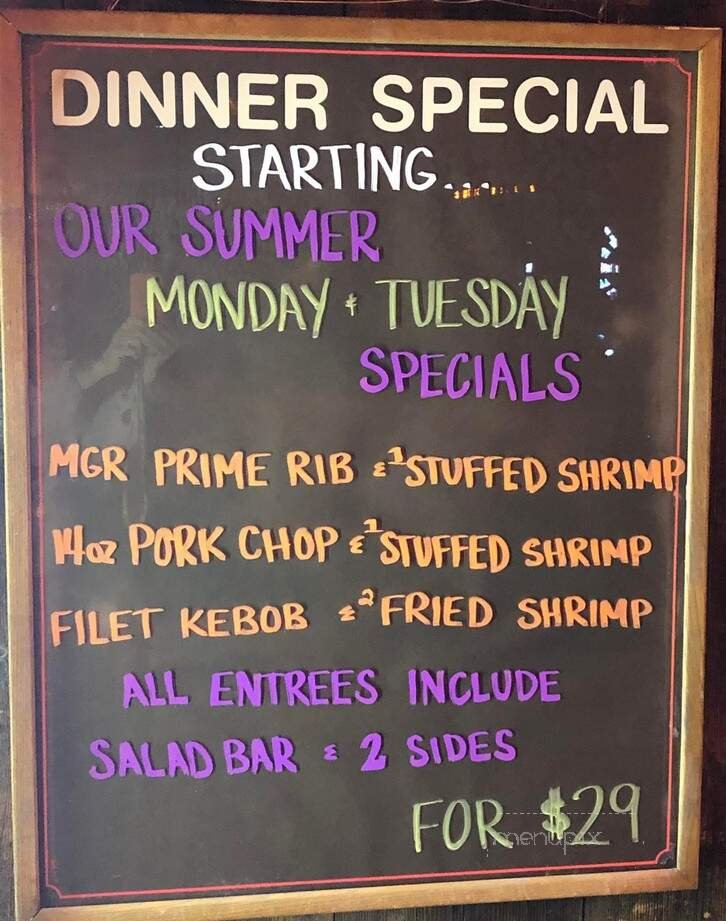 DINNER SPECIAL
STARTING....
OUR SUMMER
MONDAY & TUESDAY
SPECIALS
MGR PRIME RIB & 1 STUFFED SHRIMP
14oz PORK CHOP & 1 STUFFED SHRIMP
FILET KEBOB & 2 FRIED SHRIMP
ALL ENTREES INCLUDE
SALAD BAR & 2 SIDES
FOR $29
menupix